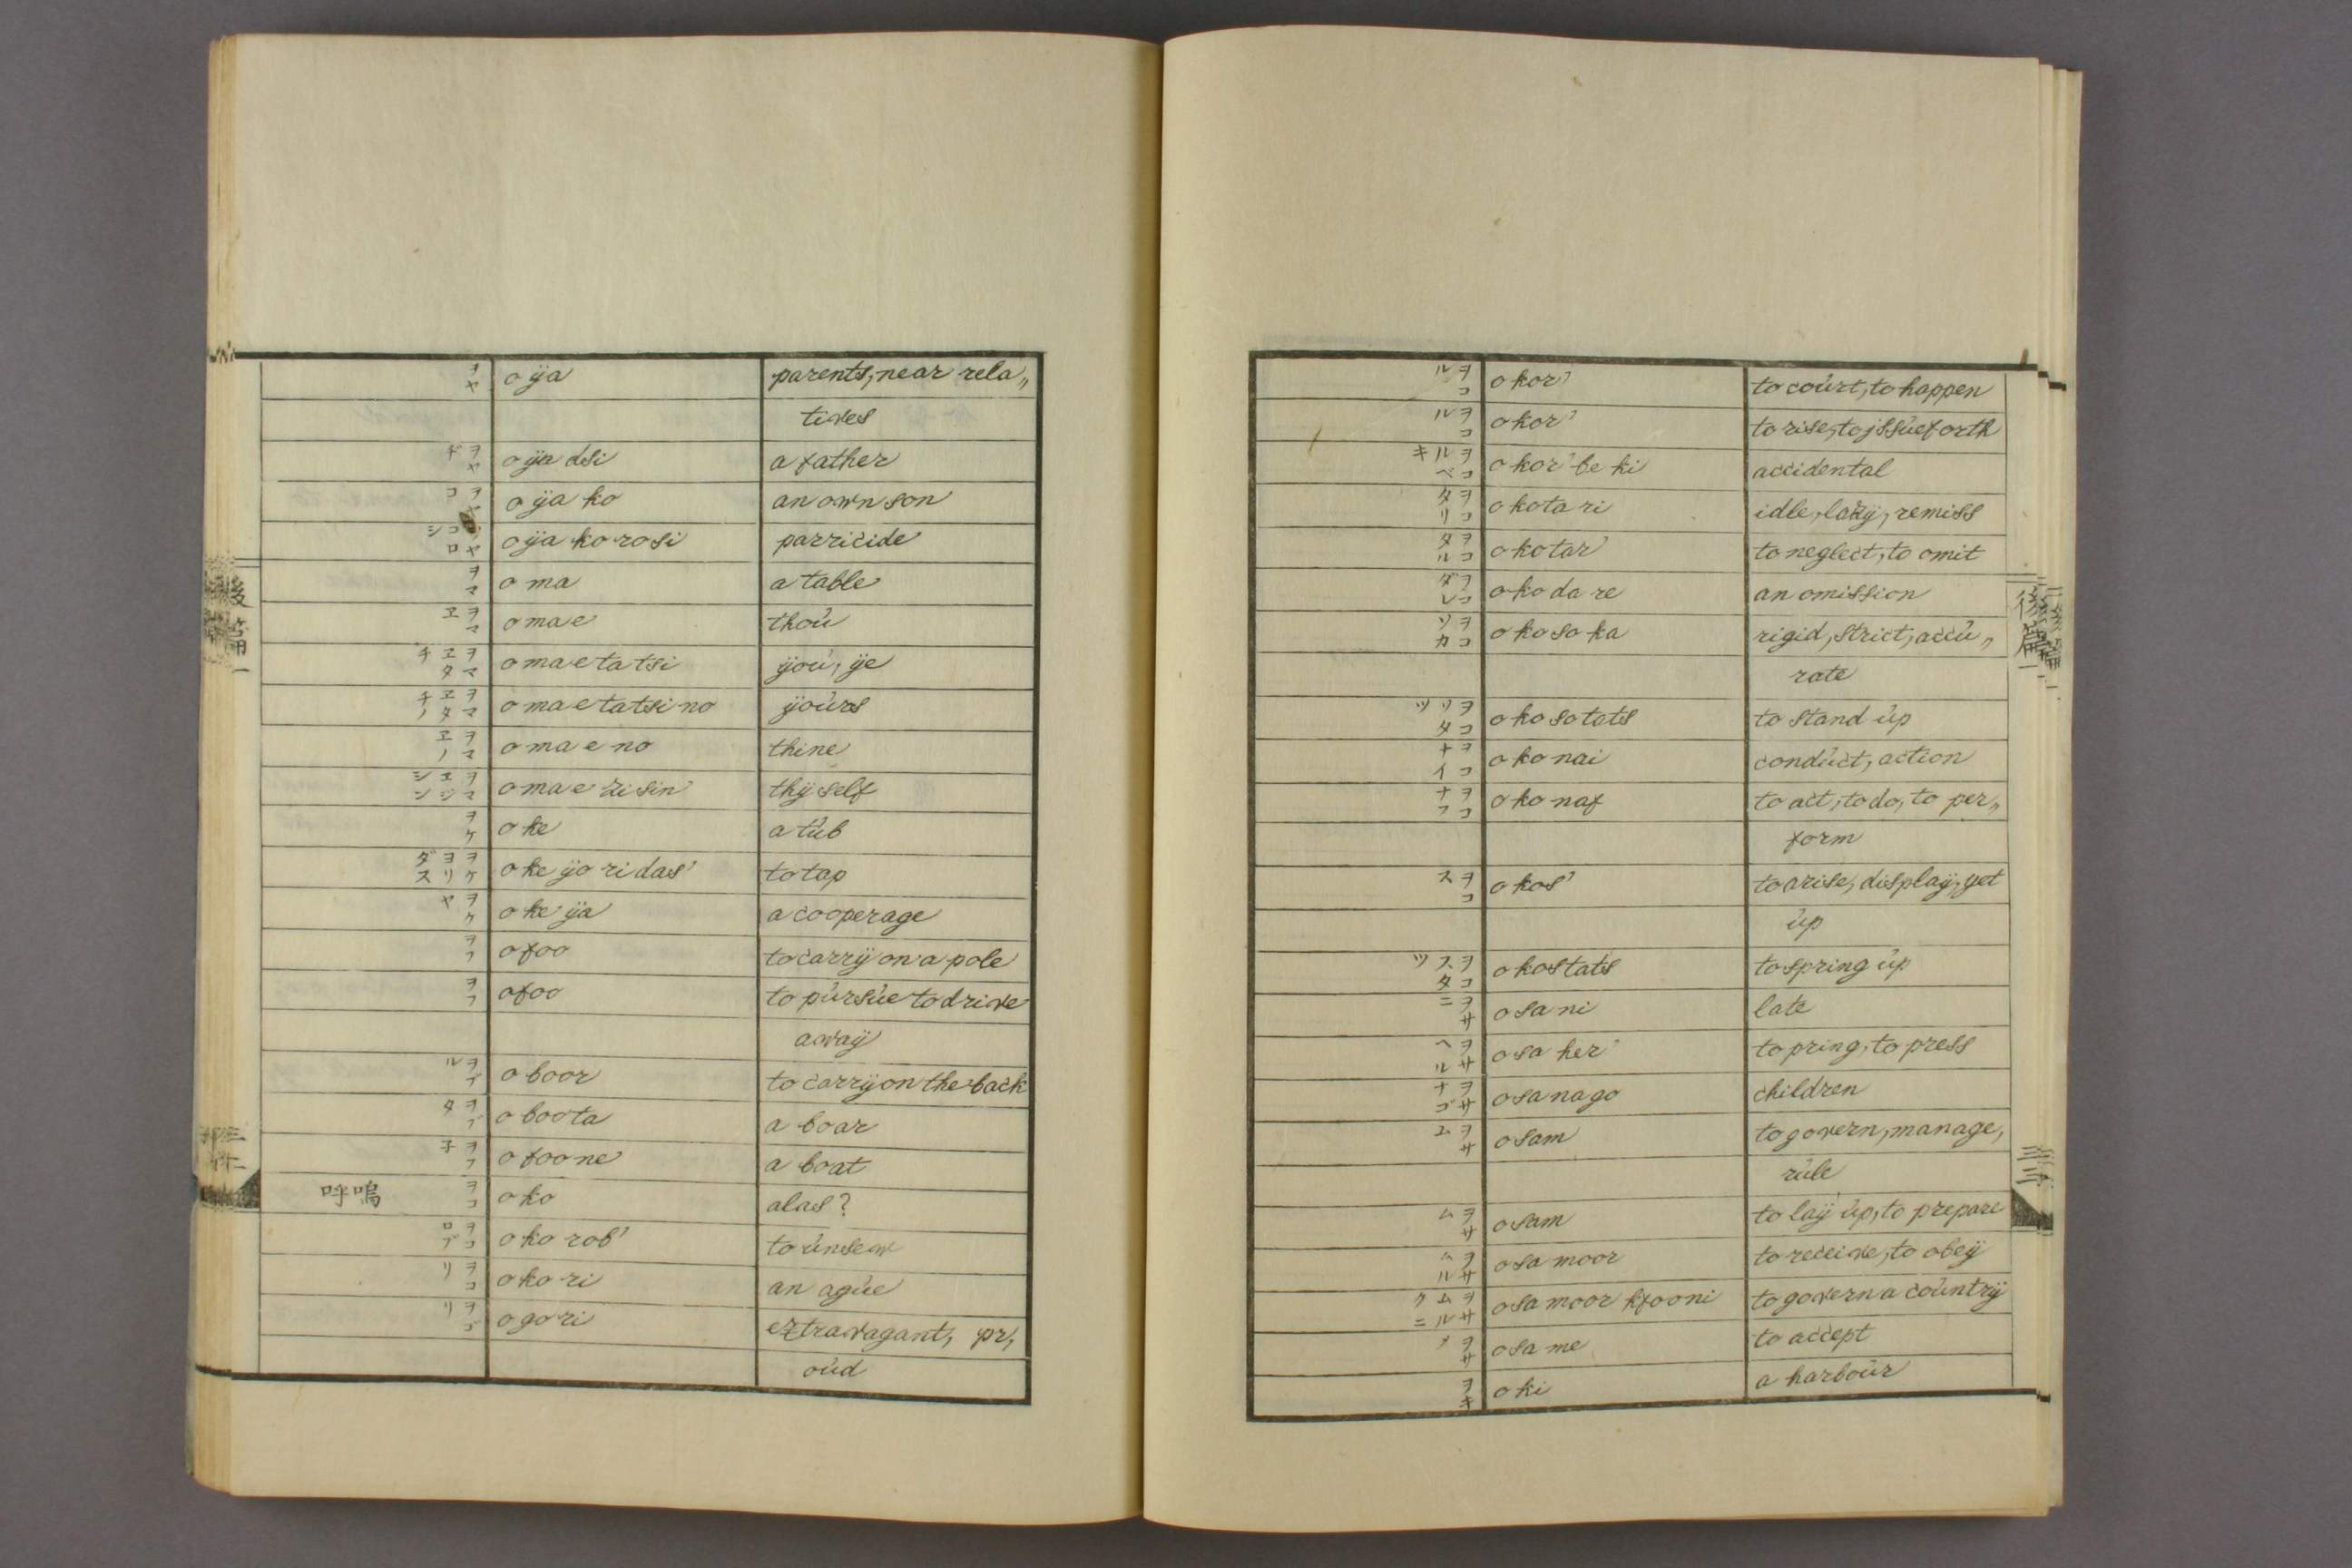 ヲヤ oÿa parents, near rela„
tives
ヲヤヂ oÿa dsi a father
ヲヤコ oÿa ko an own son
ヲヤコロシ oÿa ko rosi parricide
ヲマ o ma a table
ヲマヱ o ma e thoù
ヲマヱタチ o ma e ta tsi ÿoù, ÿe
ヲマヱタチノ o ma e ta tsi no ÿoùrs
ヲマヱノ o ma e no thine
ヲマヱジシン o ma e zi sin thÿ self
ヲケ o ke a tùb
ヲケヨリダス o ke ÿo ri das' to tap
ヲケヤ o ke ÿa a cooperage
ヲフ o foo to carrÿ on a pole
ヲフ o foo to pùrsùe to drive
awaÿ
ヲブル o boor to carrÿ on the back
ヲブタ o boo ta a boar
ヲフ子 o foo ne a boat
呼嗚 ヲコ o ko alas?
ヲコロブ o ko rob' to ùnsew
ヲコリ o ko ri an agùe
ヲゴリ o go ri extravagant, pr,
oùd
後篇一
ヲコル o kor' to coùrt, to happen
ヲコル o kor' to rise, to jssùe forth
ヲコルベキ o kor' be ki accidental
ヲコタリ o ko ta ri idle, lazÿ, remiss
ヲコタル o ko tar' to neglect, to omit
ヲコダレ o ko da re an omission
ヲコソカ o ko so ka rigid, strict, accù„
rate
ヲコソタツ o ko so tats to stand ùp
ヲコナイ o ko nai condùct, action
ヲコナフ o ko naf to act, to do, to per„
form
ヲコス o kos' to arise, displaÿ, get
ùp
ヲコスタツ o kos tats to spring ùp
ヲサニ o sa ni late
ヲサヘル o sa her' to pring, to press
ヲサナゴ o sa na go children
ヲサム o sam to govern, manage,
rùle
ヲサム o sam to laÿ ùp, to prepare
ヲサムル o sa moor to receive, to obeÿ
ヲサムルクニ o sa moor kfoo ni to govern a coùntrÿ
ヲサメ o sa me to accept
ヲキ o ki a harboùr